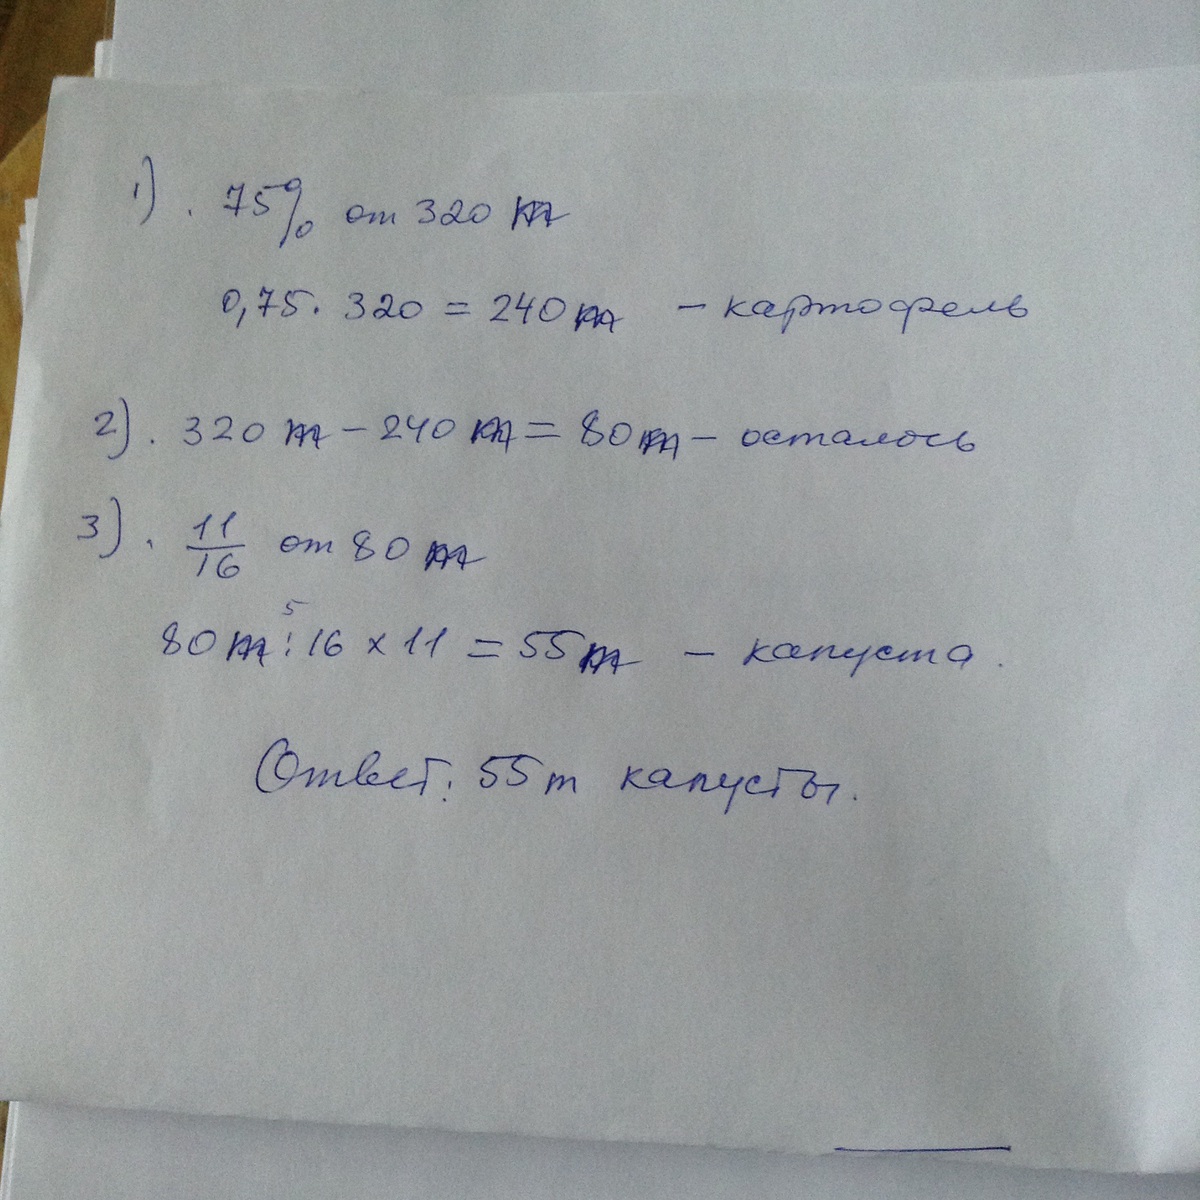 1). 75% от 320 т
0,75 · 320 = 240 т – картофель
2). 320 т – 240 т = 80 т – осталось
3). 11/16 от 80 т
5
80 т : 16 x 11 = 55 т – капуста.
Ответ: 55 т капусты.